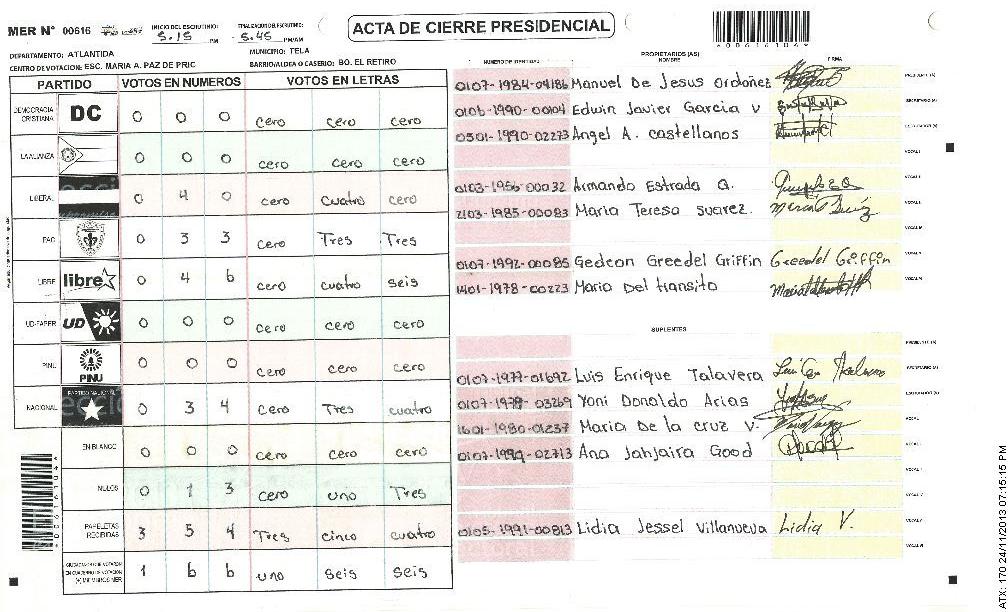 MER N° 00616
INICIO DEL ESCRUTINIO:
5.15 PM
FINALIZACION DEL ESCRUTINIO:
5.45 PM/AM
ACTA DE CIERRE PRESIDENCIAL
*00616106*
DEPARTAMENTO: ATLANTIDA
MUNICIPIO: TELA
CENTRO DE VOTACION: ESC. MARIA A. PAZ DE PRIC
BARRIO/ALDEA O CASERIO: BO. EL RETIRO
PARTIDO VOTOS EN NUMEROS VOTOS EN LETRAS
DEMOCRACIA CRISTIANA DC 0 0 0 cero cero cero
LA ALIANZA 0 0 0 cero cero cero
LIBERAL 0 4 0 cero cuatro cero
PAC 0 3 3 cero Tres Tres
LIBRE libre 0 4 6 cero cuatro seis
UD-FAPER UD 0 0 0 cero cero cero
PINU PINU 0 0 0 cero cero cero
NACIONAL PARTIDO NACIONAL 0 3 4 cero Tres cuatro
EN BLANCO 0 0 0 cero cero cero
NULOS 0 1 3 cero uno Tres
PAPELETAS RECIBIDAS 3 5 4 Tres cinco cuatro
CIUDADANOS QUE VOTARON EN CUADERNO DE VOTACION (+) MIEMBROS MER 1 6 6 uno seis seis
PROPIETARIOS (AS)
NUMERO DE IDENTIDAD NOMBRE FIRMA
0107-1984-04186 Manuel De Jesus Ordoñez PRESIDENTE (A)
0106-1990-00104 Edwin Javier Garcia v SECRETARIO (A)
0501-1990-02273 Angel A. castellanos ESCRUTADOR (A)
VOCAL I
0103-1956-00032 Armando Estrada Q. VOCAL II
2103-1985-00083 Maria Teresa suarez. VOCAL III
VOCAL IV
0107-1992-00085 Gedeon Greedel Griffin Greedel Griffin VOCAL V
1401-1978-00223 Mario Del transito VOCAL VI
SUPLENTES
PRESIDENTE (A)
0107-1977-01692 Luis Enrique Talavera SECRETARIO (A)
0107-1978-03269 Yoni Donaldo Arias ESCRUTADOR (A)
1601-1980-01237 Maria De la cruz V. VOCAL I
0107-1994-02713 Ana Jahjaira Good VOCAL II
VOCAL III
VOCAL IV
0105-1991-00813 Lidia Jessel Villanueva Lidia V. VOCAL V
VOCAL VI
ATX: 170 24/11/2013 07:15:15 PM